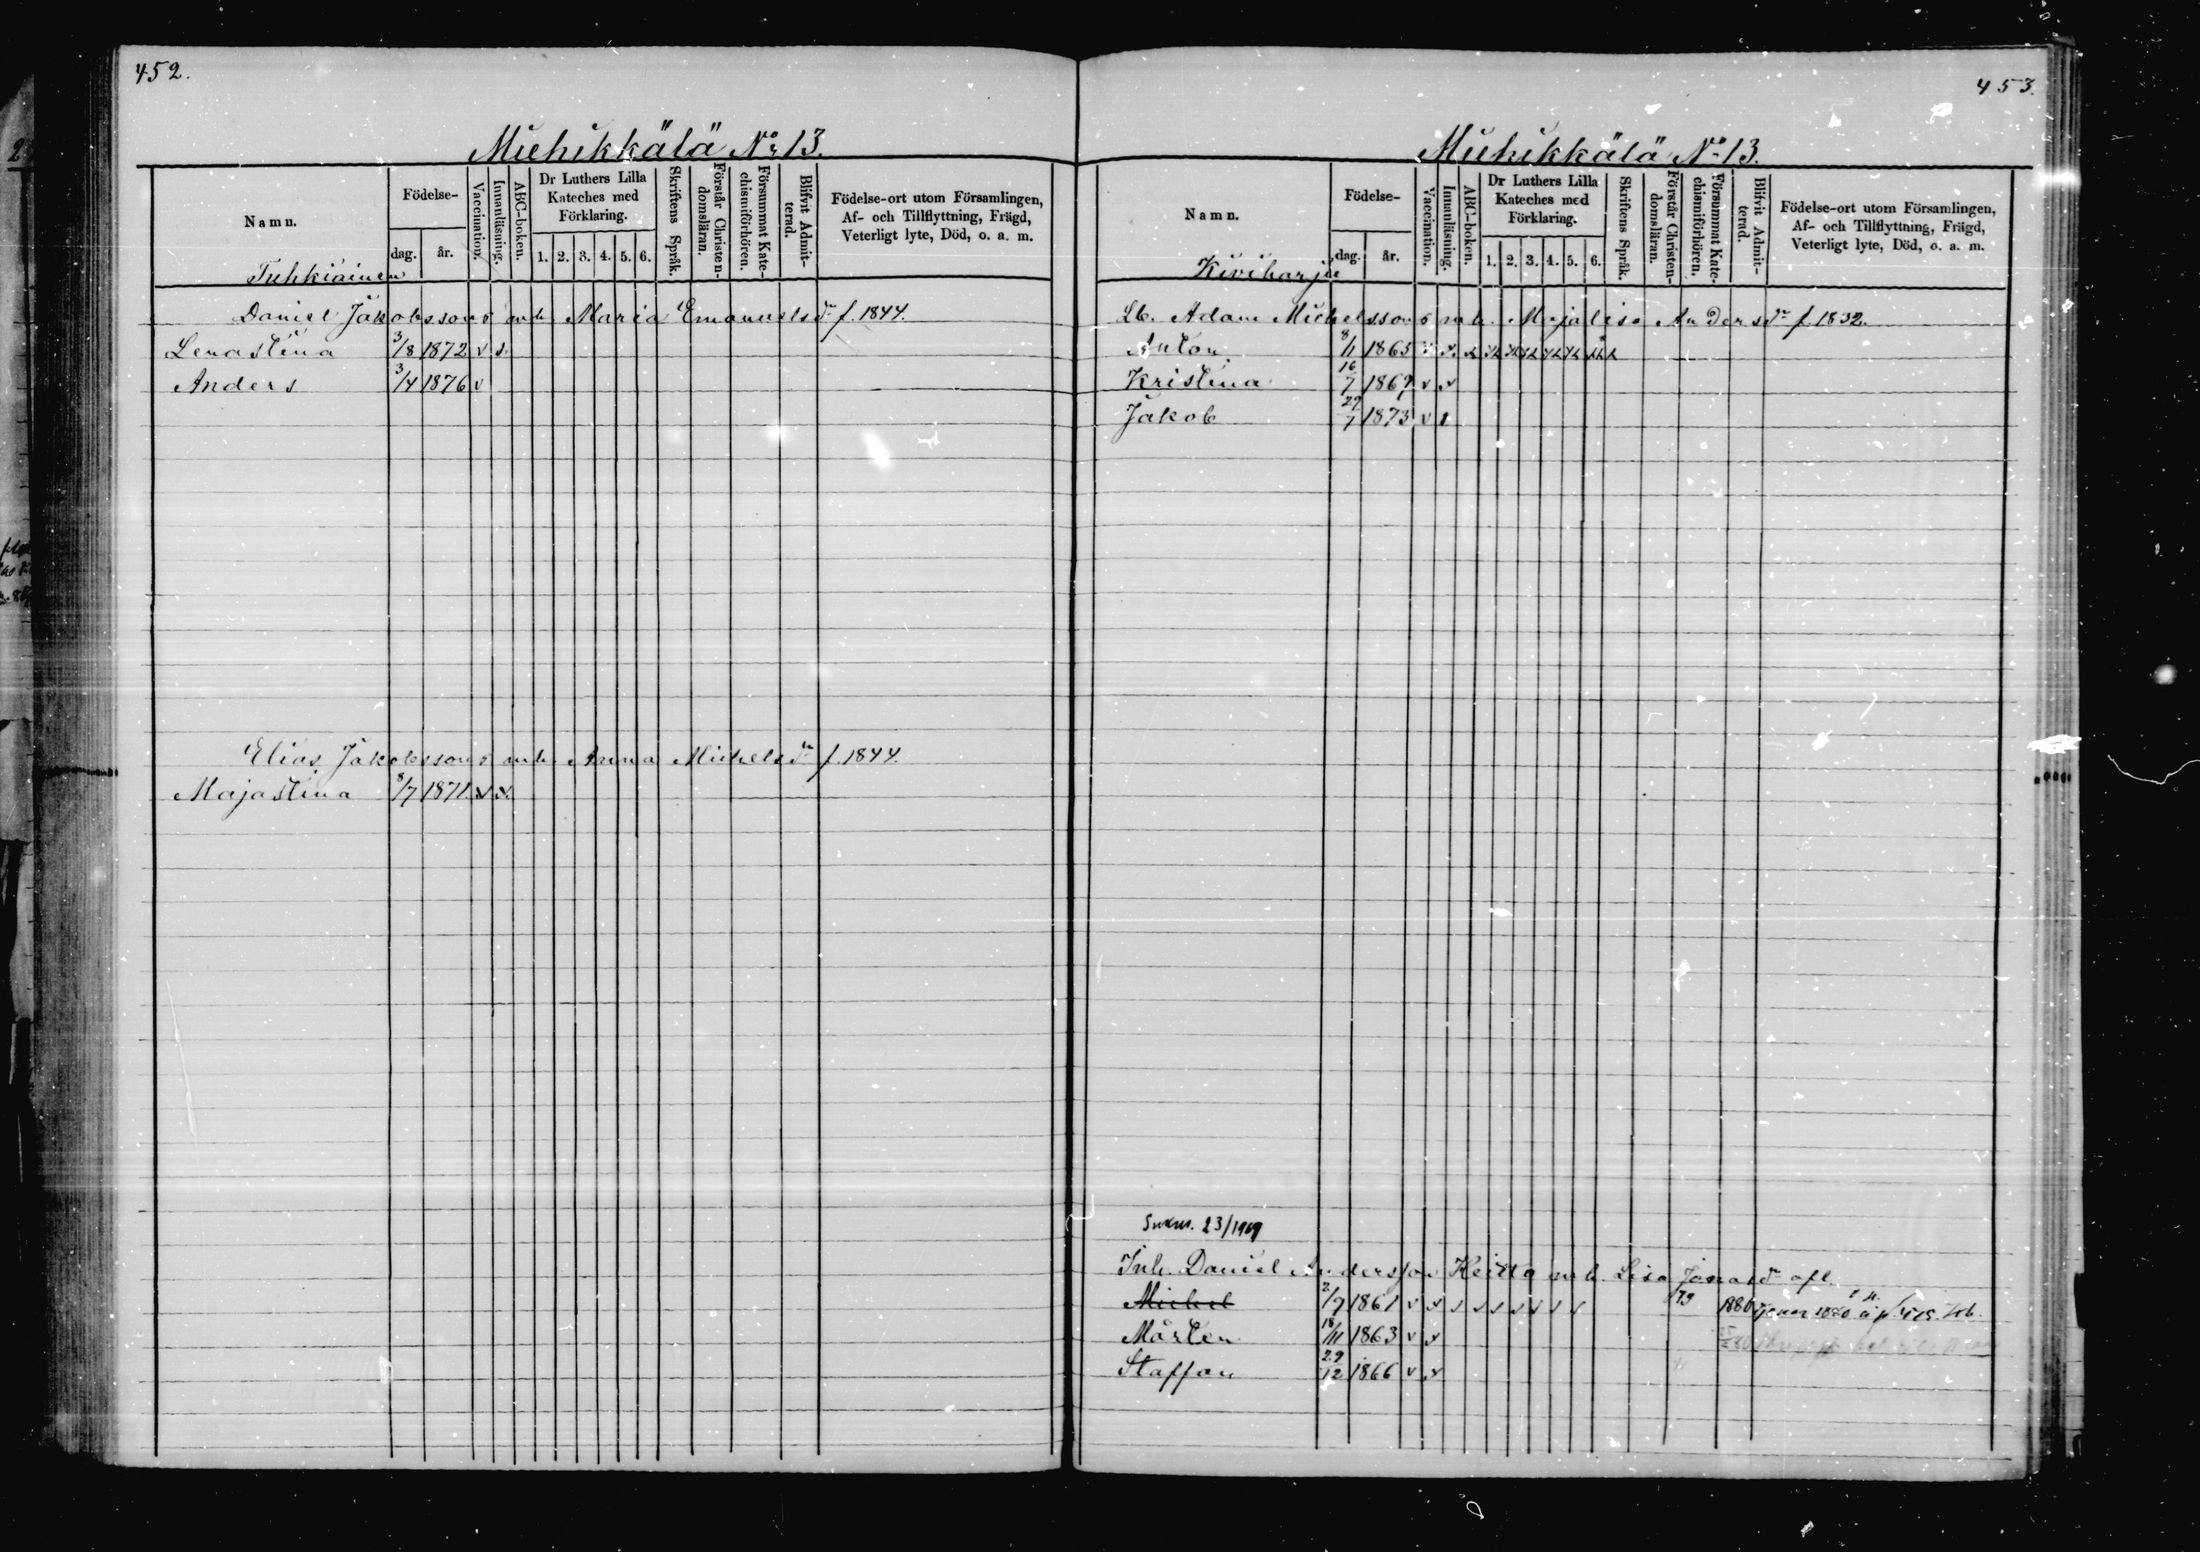 452.
Miehikkälä No 13.
Namn.
Födelse-
dag.
år.
Vaccination.
Innanläsning.
ABC-boken.
Dr Luthers Lilla
Kateches med
Förklaring.
1. 2. 3. 4. 5. 6.
Skriftens Språk.
Förstår Christen-
domsläran.
Försummat Kate-
chismiförhören.
Blifvit Admit-
terad.
Födelse-ort utom Församlingen,
Af- och Tillflyttning, Frägd,
Veterligt lyte, Död, o. a. m.
Tuhkiainen
Daniel Jakobssons m h. Maria Emanuelsdr f. 1844.
Lenastina 3/8 1872 v s.
Anders 3/4 1876 v
Elias Jakobssons m h. Anna Michelsdr f. 1844.
Majastina 8/7 1871. v v.
453.
Miehikkälä No 13.
Namn.
Födelse-
dag.
år.
Vaccination.
Innanläsning.
ABC-boken.
Dr Luthers Lilla
Kateches med
Förklaring.
1. 2. 3. 4. 5. 6.
Skriftens Språk.
Förstår Christen-
domsläran.
Försummat Kate-
chismiförhören.
Blifvit Admit-
terad.
Födelse-ort utom Församlingen,
Af- och Tillflyttning, Frägd,
Veterligt lyte, Död, o. a. m.
Kiviharju
Lb. Adam Michelssons m h. Majalisa Andersdr f. 1832.
Anton 8/11 1865
Kristina 16/7 1869 v v
Jakob 29/7 1873 v
23/1909
Inh. Daniel Andersson Heitto m h. Lisa Jonasdr
Michel 2/9 1861 v v 79 1880
Mårten 18/11 1863 v v
Staffan 29/12 1866 v v